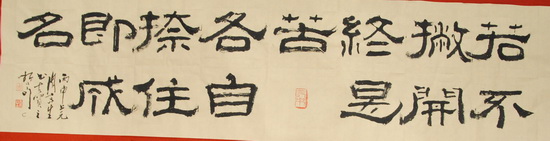 若不
撇開
終是
苦
各自
捺住
即成
名
丙申